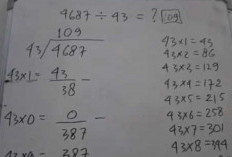 4687 ÷ 43 = ? 109
109
43 √4687
43×1 = 43 -
38
43×0 = 0 -
387
387
43×1 = 43
43×2 = 86
43×3 = 129
43×4 = 172
43×5 = 215
43×6 = 258
43×7 = 301
43×8 = 344